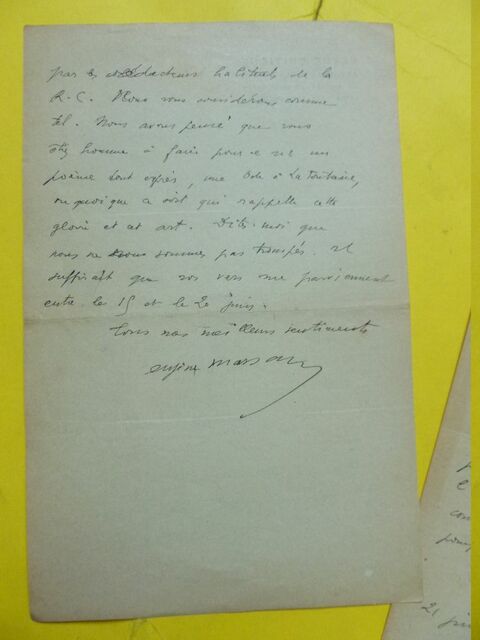 par les rédacteurs habituels de la
R.C. Nous vous considérons comme
tel. Nous avons pensé que vous
étiez homme à faire pour ce un
poème tout exprès, une Ode à La Fontaine,
ou quoique ce soit qui rappelle cette
gloire et cet art. Dites-moi que
nous ne nous sommes pas trompés. Il
suffirait que vos vers me parviennent
entre les 15 et le 20 juin.
Tous nos meilleurs sentiments
21 juin